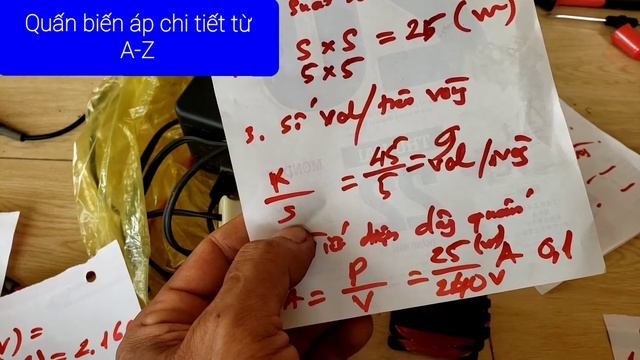 Quấn biến áp chi tiết từ
A-Z
(w)
5 x 5 = 25
5 x 5
3. Số vol/trên vòng
K/S = 45/5 = 9 vol/vòng
diện dây quấn
A = P/V = 25 (w)/240V A 0,1
= 2.16